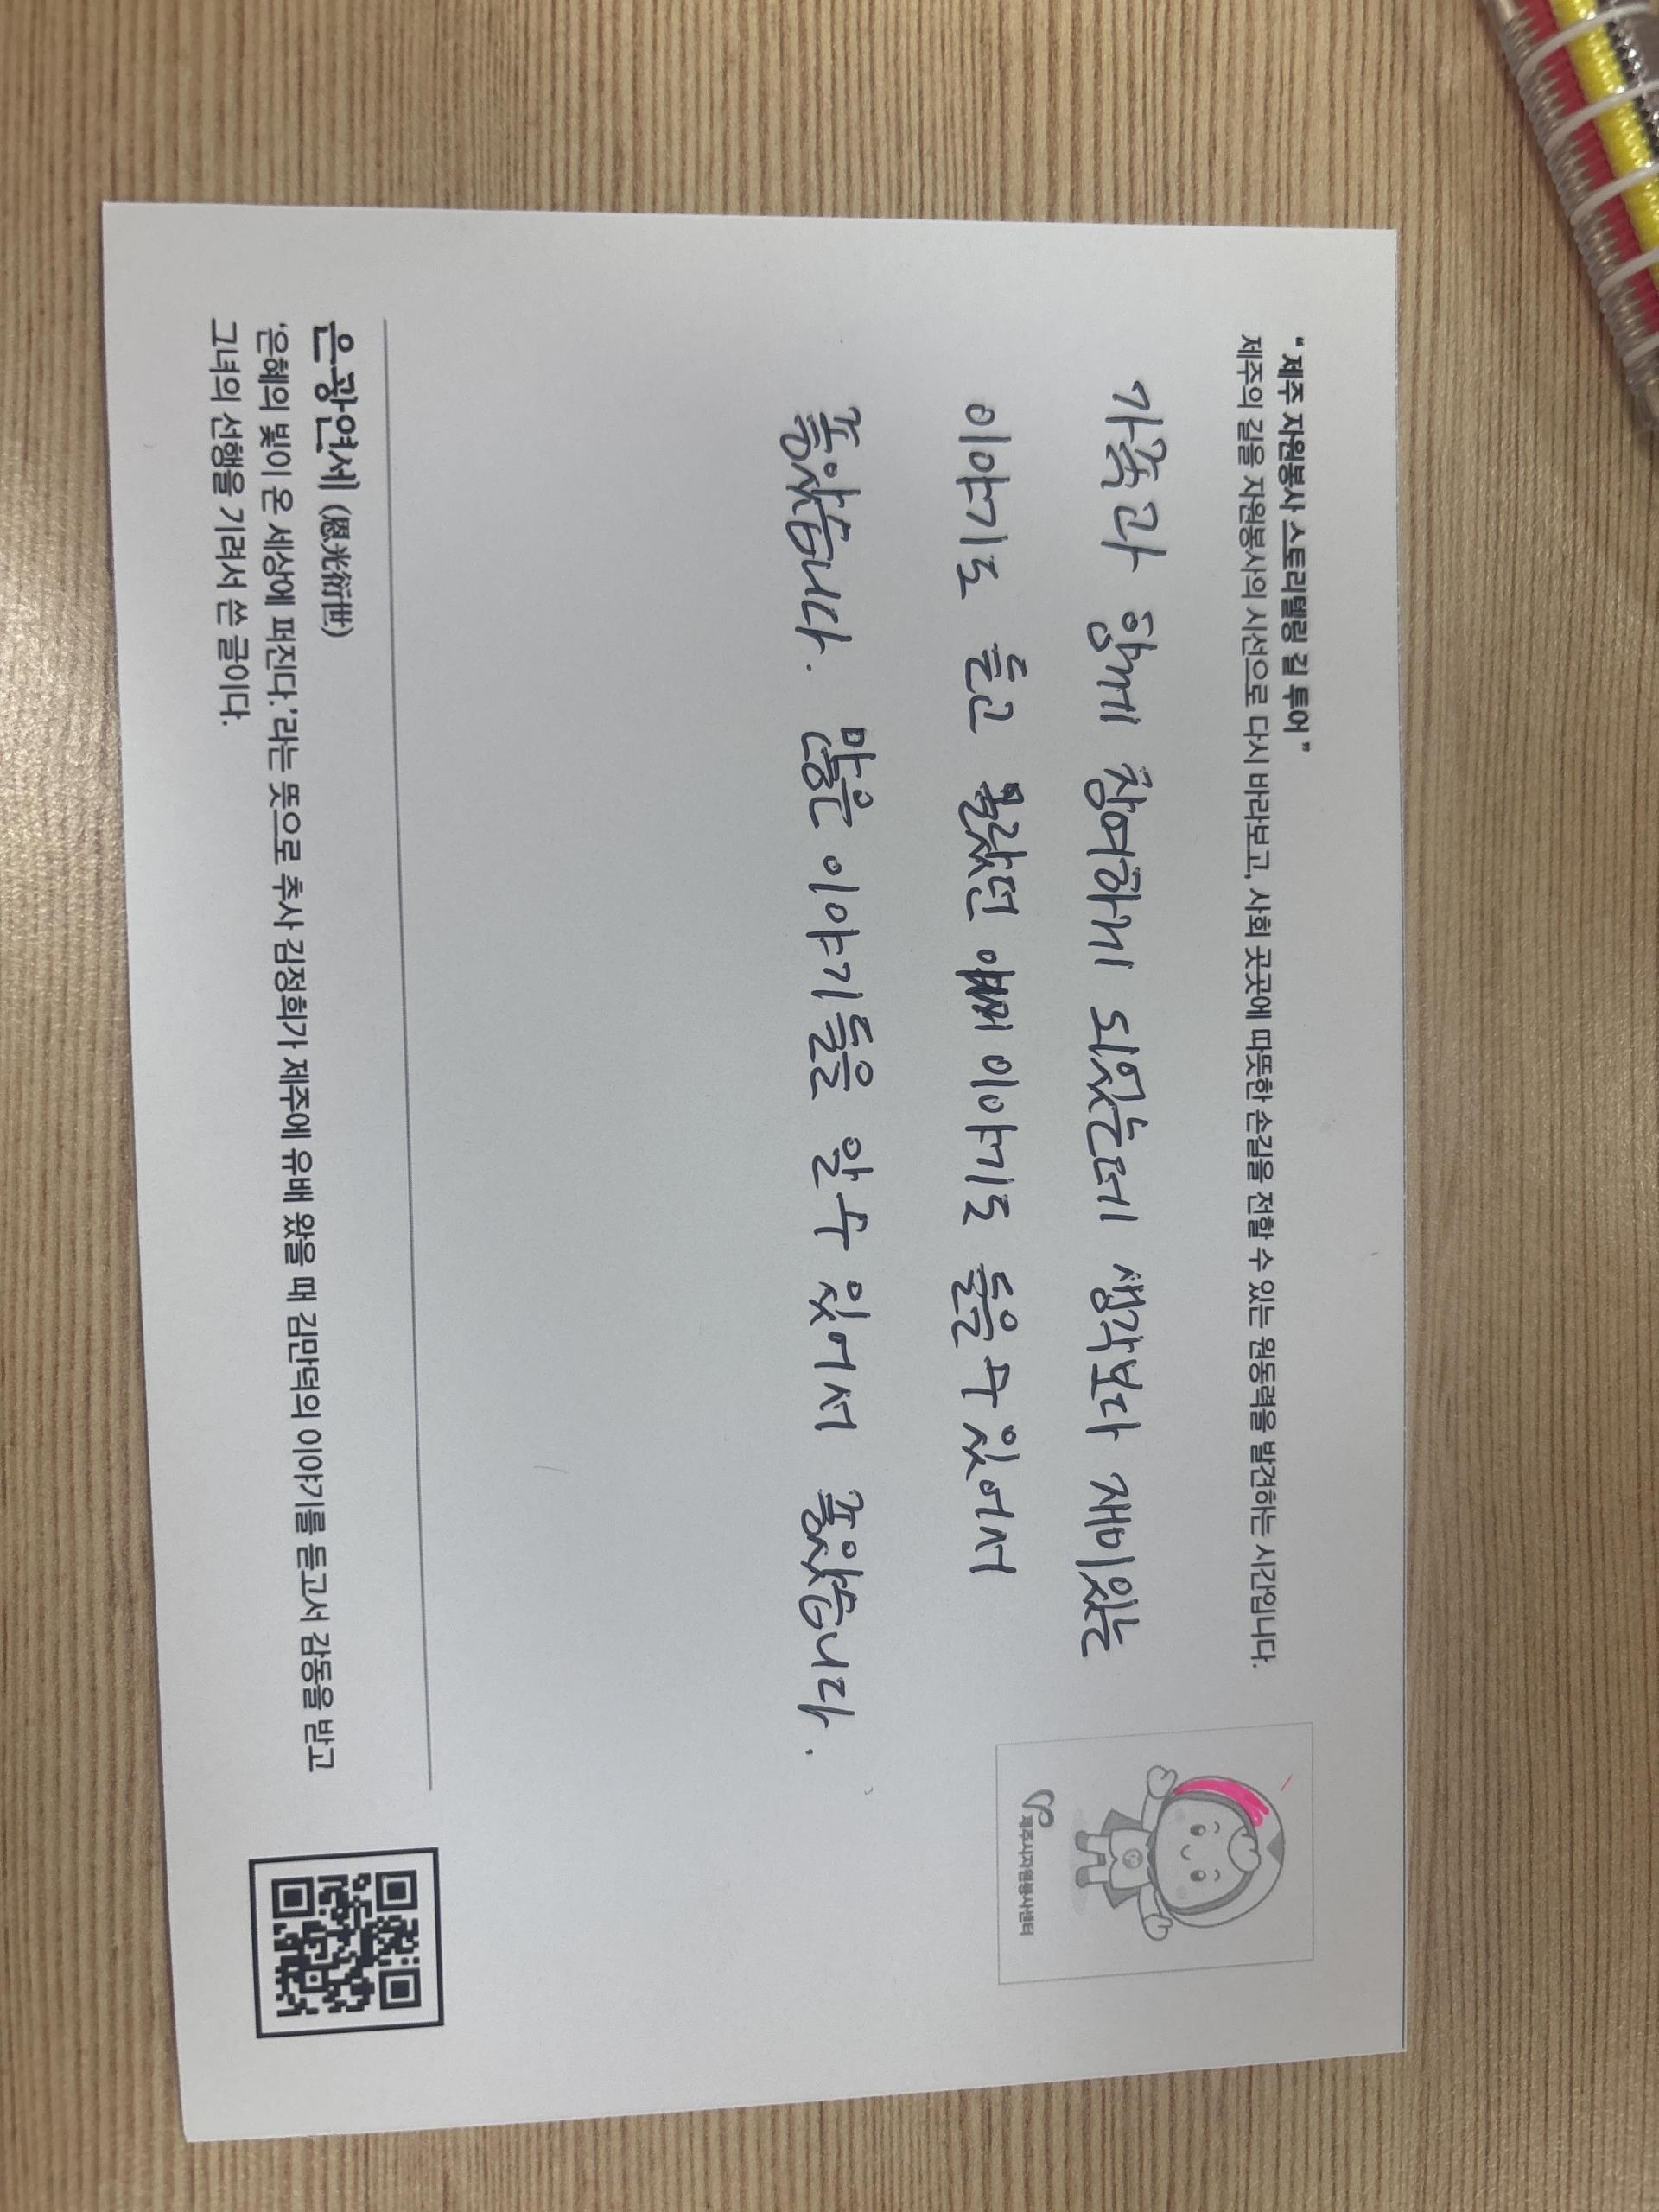 “ 제주 자원봉사 스토리텔링 길 투어 ”
제주의 길을 자원봉사의 시선으로 다시 바라보고, 사회 곳곳에 따뜻한 손길을 전할 수 있는 원동력을 발견하는 시간입니다.
가족과 함께 참여하게 되었는데 생각보다 재미있는
이야기도 듣고 몰랐던 이야기도 들을 수 있어서
좋았습니다. 많은 이야기들을 알 수 있어서 좋았습니다.
제주시자원봉사센터
은광연세 (恩光衍世)
‘은혜의 빛이 온 세상에 퍼진다.’라는 뜻으로 추사 김정희가 제주에 유배 왔을 때 김만덕의 이야기를 듣고서 감동을 받고
그녀의 선행을 기려서 쓴 글이다.